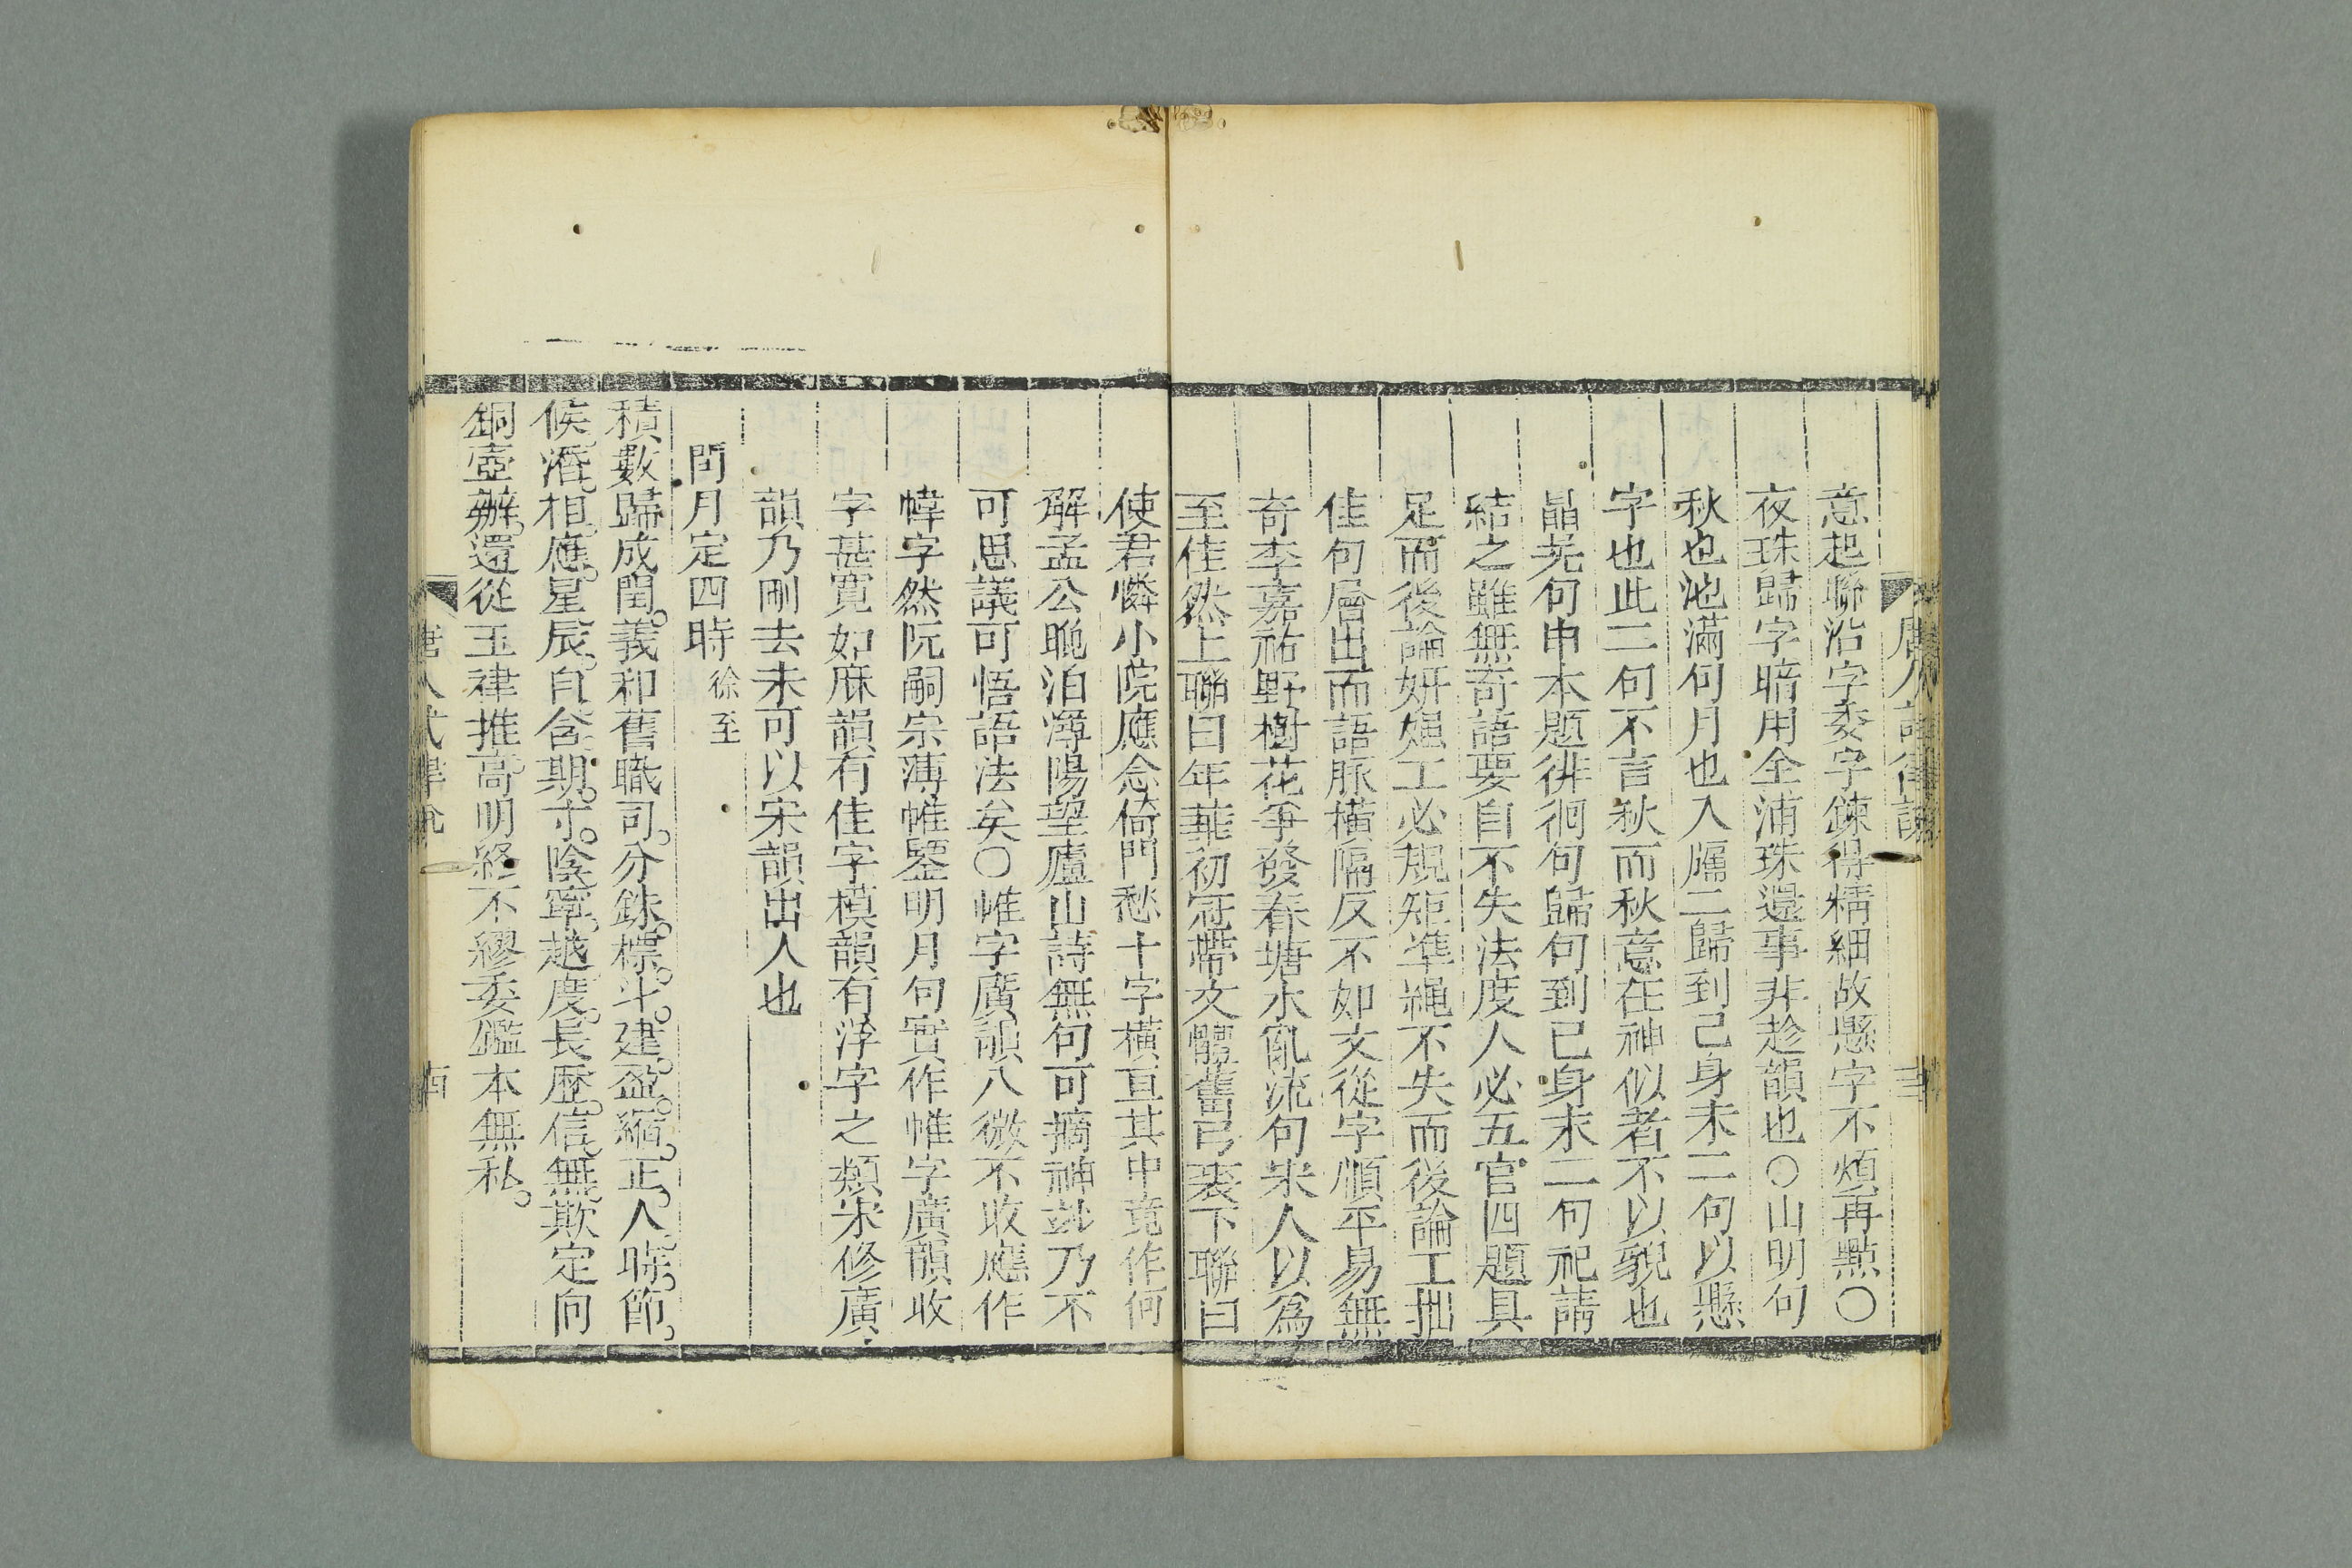 意起聯沿字委字鍊得精細故懸字不煩再點〇
夜珠歸字暗用全浦珠還事非趁韻也〇山明句
秋也池滿句月也入牖二歸到己身末二句以懸
字也此二句不言秋而秋意在神似者不以貌也
晶光句申本題徘徊句歸句到已身末二句祀請
結之雖無奇語要自不失法度人必五官四題具
足而後論妍媸工必規矩準繩不失而後論工拙
佳句層出而語脈橫隔反不如文從字順平易無
奇李嘉祐野樹花爭發春塘水亂流句宋人以為
至佳然上聯曰年華初冠帶文體舊弓裘下聯曰
使君憐小院應念倚門愁十字橫亘其中竟作何
解孟公晚泊潯陽望廬山詩無句可摘神妙乃不
可思議可悟語法矣〇帷字廣韻八微不收應作
幃字然阮嗣宗薄帷鑒明月句實作帷字廣韻收
字甚寬如麻韻有佳字模韻有浮字之類宋修廣
韻乃刪去未可以宋韻出入也
閏月定四時 徐至
積數歸成閏。羲和舊職司。分銖標斗建。盈縮正人時。節
候潛相應。星辰自合期。寸陰寧越度。長歷信無欺。定向
銅壺辦。還從玉律推。高明終不繆。委鑑本無私。